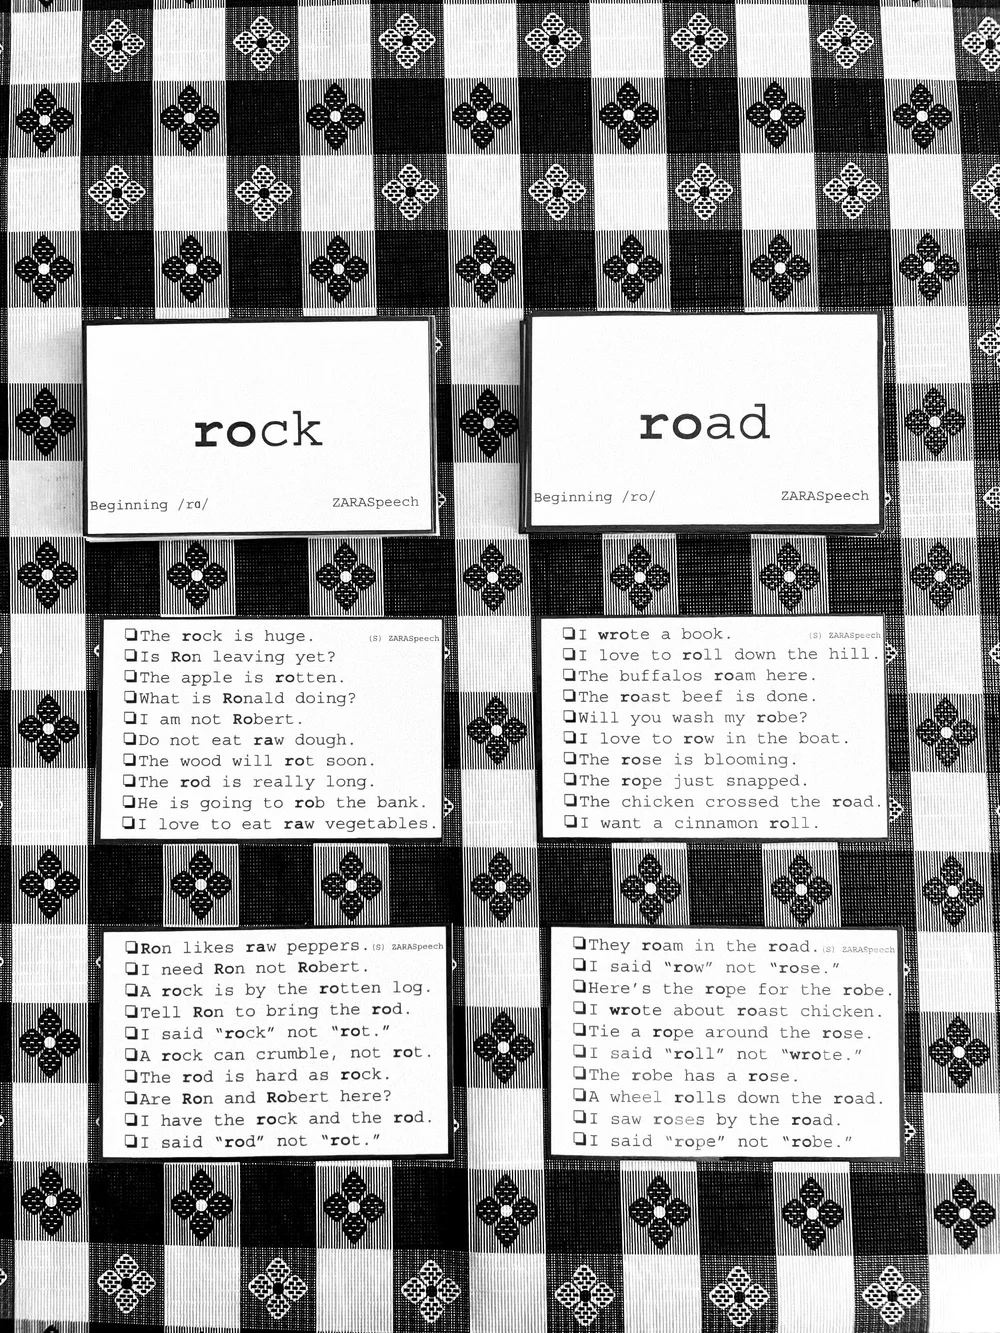 rock
Beginning /rɑ/ ZARASpeech
road
Beginning /ro/ ZARASpeech
❏The rock is huge. (S) ZARASpeech
❏Is Ron leaving yet?
❏The apple is rotten.
❏What is Ronald doing?
❏I am not Robert.
❏Do not eat raw dough.
❏The wood will rot soon.
❏The rod is really long.
❏He is going to rob the bank.
❏I love to eat raw vegetables.
❏I wrote a book. (S) ZARASpeech
❏I love to roll down the hill.
❏The buffalos roam here.
❏The roast beef is done.
❏Will you wash my robe?
❏I love to row in the boat.
❏The rose is blooming.
❏The rope just snapped.
❏The chicken crossed the road.
❏I want a cinnamon roll.
❏Ron likes raw peppers. (S) ZARASpeech
❏I need Ron not Robert.
❏A rock is by the rotten log.
❏Tell Ron to bring the rod.
❏I said “rock” not “rot.”
❏A rock can crumble, not rot.
❏The rod is hard as rock.
❏Are Ron and Robert here?
❏I have the rock and the rod.
❏I said “rod” not “rot.”
❏They roam in the road. (S) ZARASpeech
❏I said “row” not “rose.”
❏Here’s the rope for the robe.
❏I wrote about roast chicken.
❏Tie a rope around the rose.
❏I said “roll” not “wrote.”
❏The robe has a rose.
❏A wheel rolls down the road.
❏I saw roses by the road.
❏I said “rope” not “robe.”